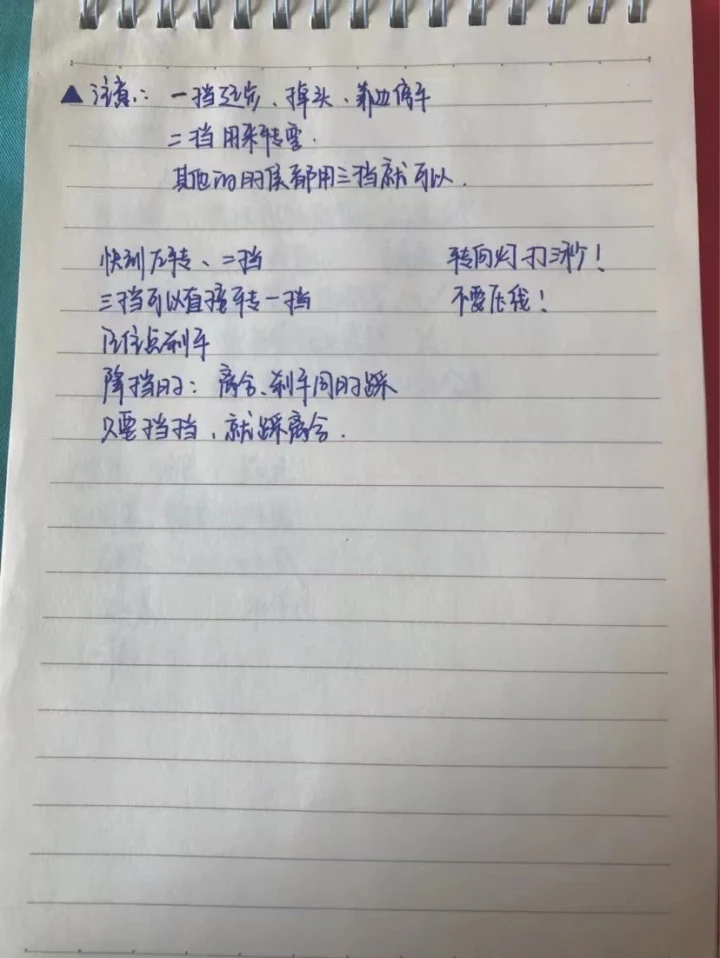 ▲ 注意：一挡起步、掉头、靠边停车
二挡用来转弯.
其他的时候都用三挡就可以.
快到左转、二挡
转向灯打三秒！
三挡可以直接转一挡
不要压线！
压住点刹车
降挡时：离合、刹车同时踩
只要挂挡，就踩离合.